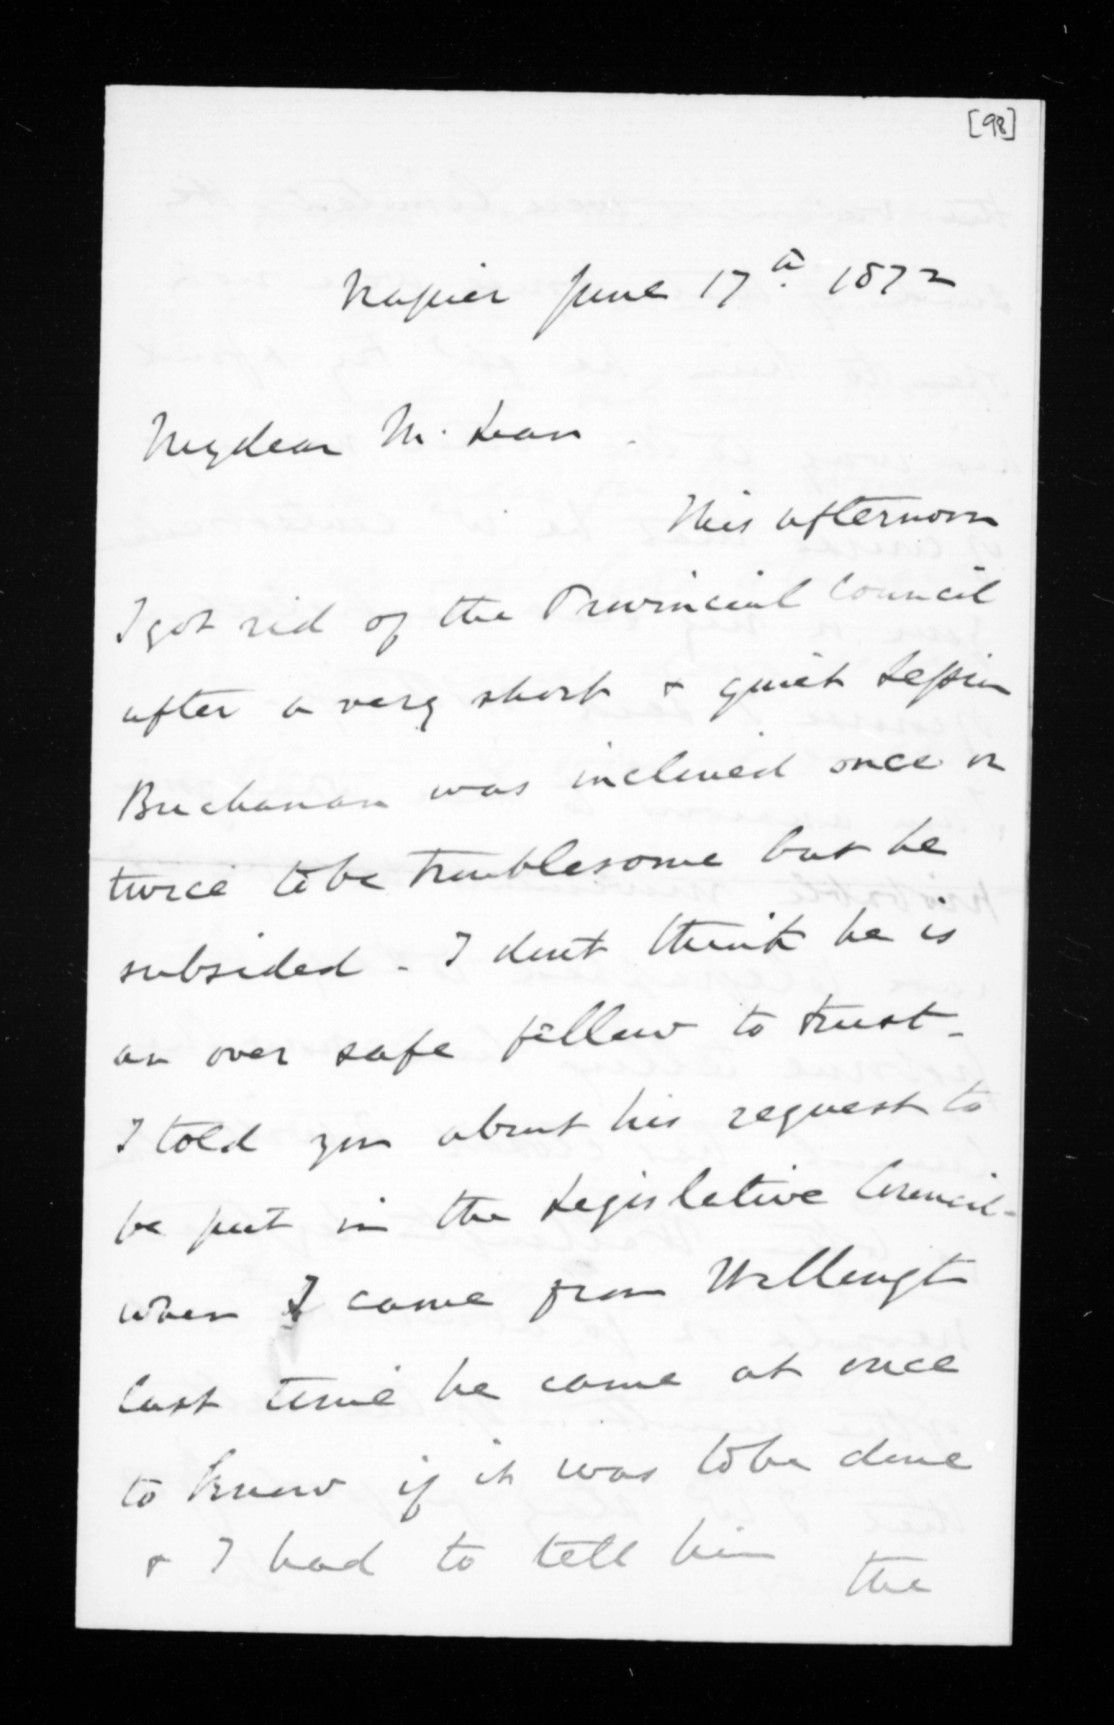 [98]
Napier June 17th. 1872
My dear McLean
This afternoon
I got rid of the Provincial Council
after a very short & quiet Session
Buchanan was inclined once or
twice to be troublesome but he
subsided - I dont think he is
an over safe fellow to trust -
I told you about his request to
be put in the Legislative Council -
when I came from Wellingt
last time he came at once
to know if it was to be done
& I had to tell him
the